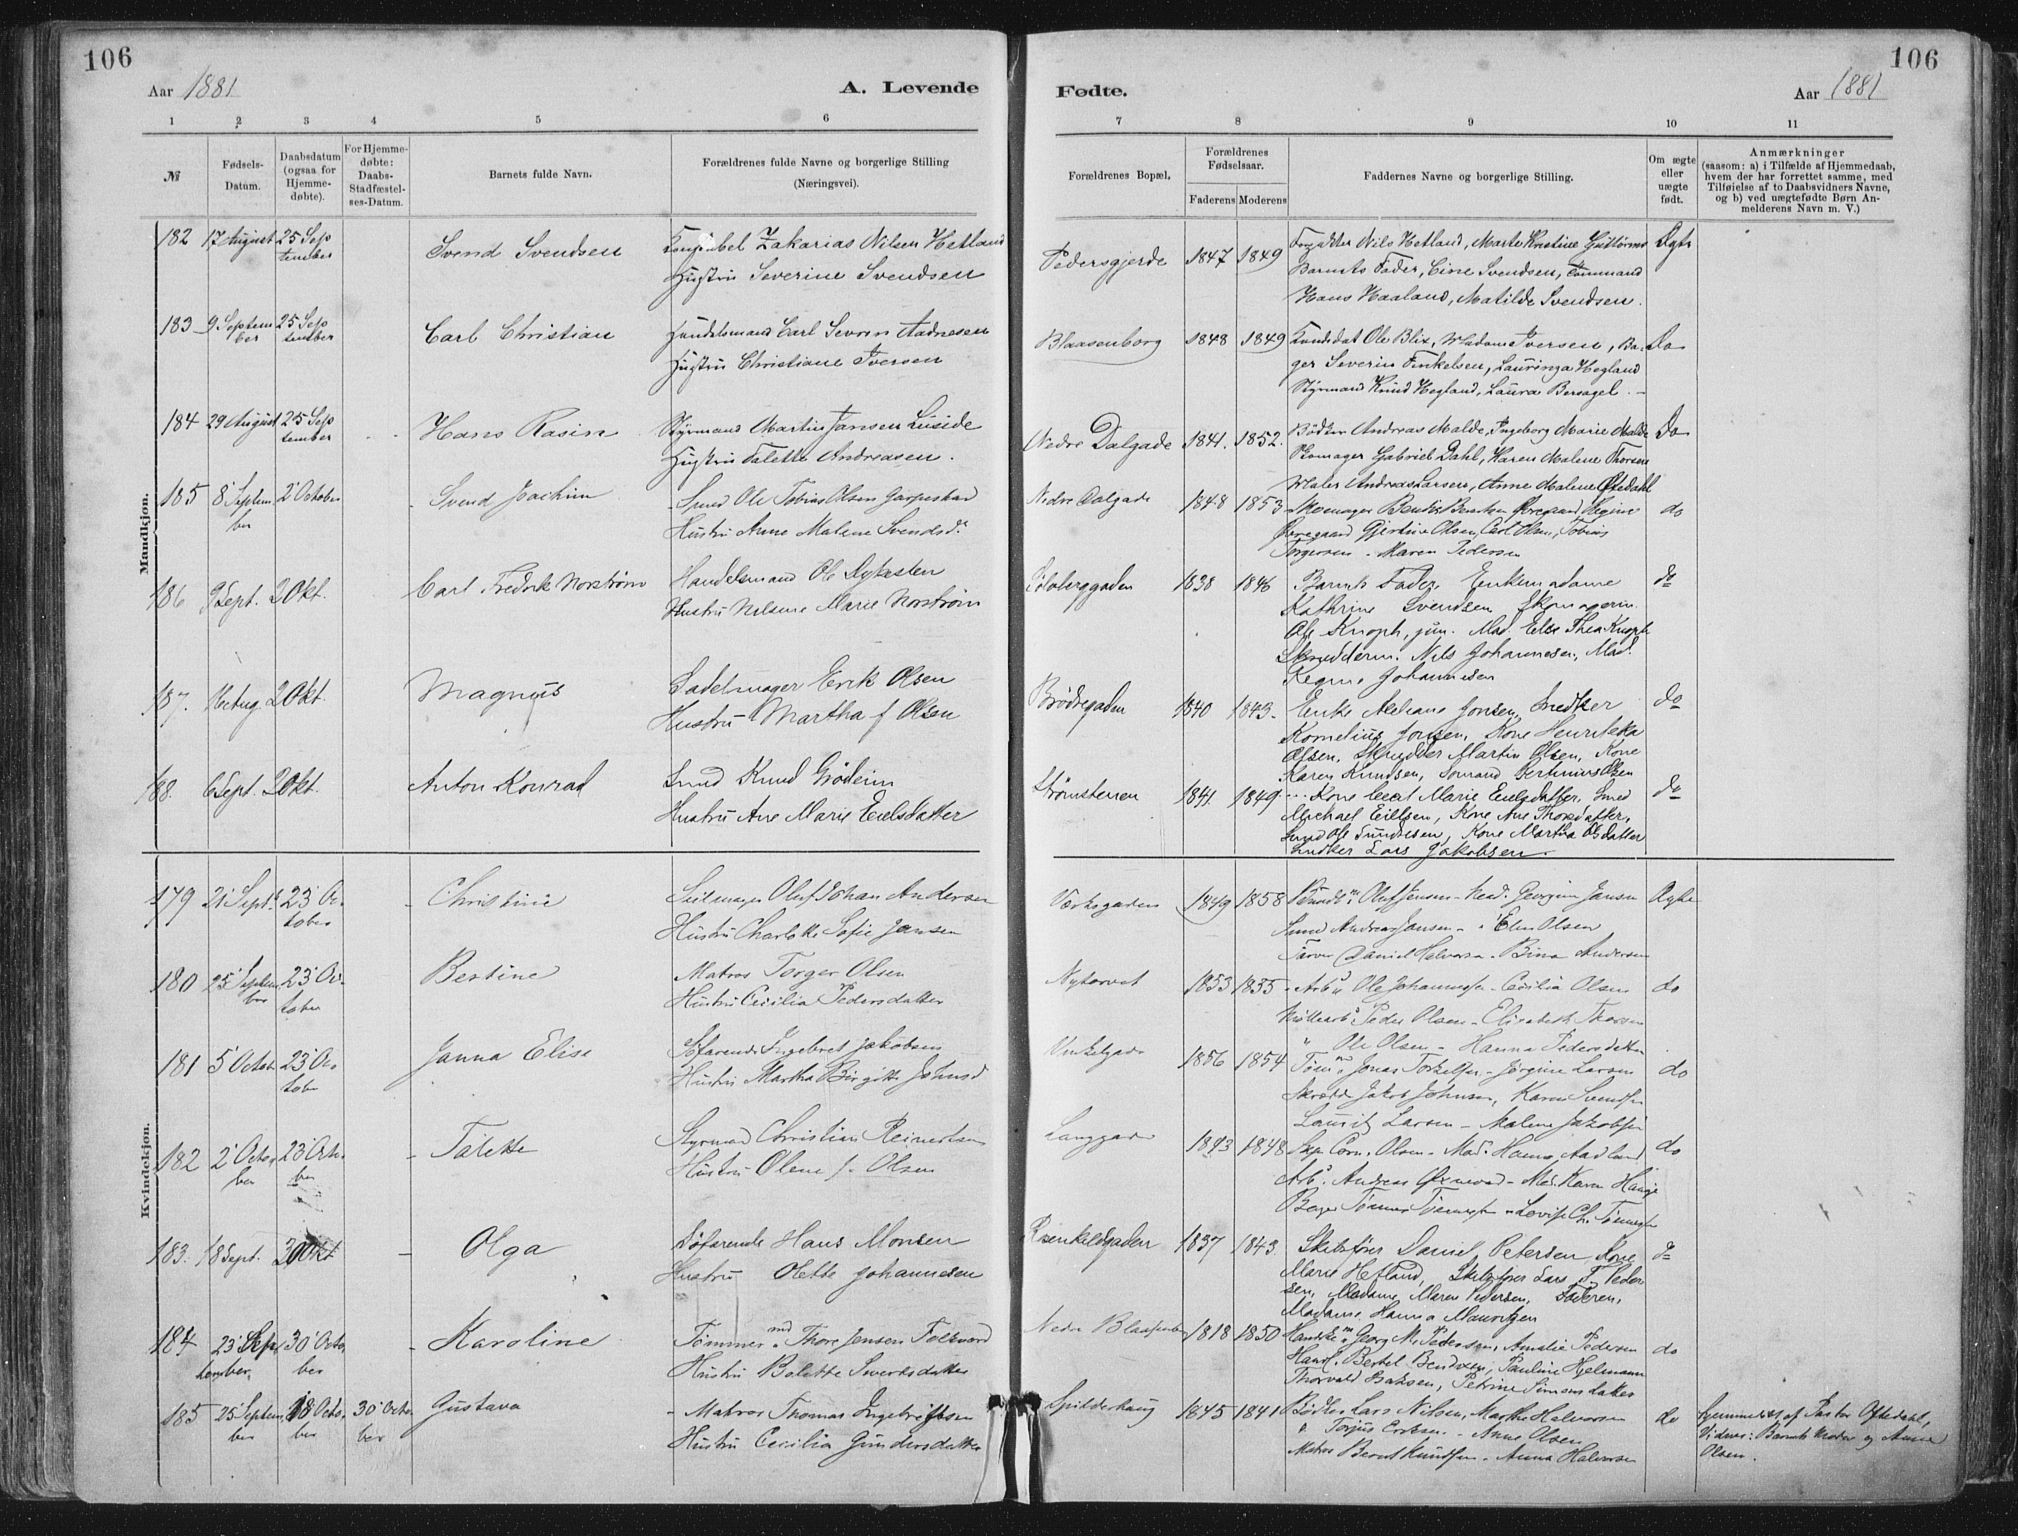 106
Aar 1881
A. Levende
1 2 3 4 5 6
№
Fødsels-Datum.
Daabsdatum (ogsaa for Hjemme-døbte).
For Hjemme-døbte: Daabs-Stadfæstel-ses-Datum.
Barnets fulde Navn.
Forældrenes fulde Navne og borgerlige Stilling
(Næringsvei).
Mandkjøn.
182 17 August 25 September Svend Svendsen
Zakarias Nilsen Hetland
Hustru Severine Svendsen
183 9 September 25 September Carl Christian
Handelsmand Carl Severin Aadnesen
Hustru Christiane Iversen
184 29 August 25 September Hans Rasin
Styrmand Martin Jansen
Hustru Talette Andreasen.
185 8 September 2 October Svend Joachim
Smed Ole Tobias Olsen
Hustru Anne Malene Svendsd.
186 9 Sept. 2 Okt. Carl Fredrik Norstrøm
Handelsmand Ole
Hustru Nilsine Marie Norstrøm
187. 2 Okt. Magnus
Sadelmager Erik Olsen
Hustru Martha f Olsen
188. 6 Sept. 2 Okt. Anton Konrad
Smed Knud Grødem
Hustru Ane Marie Eielsdatter
Kvindekjøn.
179 21 Sept. 23 October - Christine
Seilmager Oluf Johan Andersen
Hustru Charlotte Sofie Jansen
180 25 September 23 October Bertine
Matros Torger Olsen
Hustru Cecilia Pedersdatter
181 5 October 23 October Janna Elise
Søfarende Ingebret Jakobsen
Hustru Martha Birgitte Johnsd
182 2 October 23 October - Talette
Styrmand Christian Reinertsen
Hustru Olene f. Olsen
183. 18 Sept. 30 Okt - Olga
Søfarende Hans Monsen
Hustru Olette Johannesen
184 23 September 30 October - Karoline
Tømmermd. Thore Jensen
Hustru Bolette Sivertsdatter
185 25 September 18 October 30 October Gustava
Matros Thomas Ingebrigtsen
Hustru Cecilia Gundersdatter
106
Fødte.
Aar 1881
7 8 9 10 11
Forældrenes Bopæl.
Forældrenes Fødselsaar.
Faderens Moderens
Faddernes Navne og borgerlige Stilling.
Om ægte eller uægte født.
Anmærkninger
(saasom: a) i Tilfælde af Hjemmedaab, hvem der har forrettet samme, med Tilføielse af to Daabsvidners Navne, og b) ved uægtefødte Børn An-melderens Navn m. V.)
Pedersgjerde 1847 1849
Nils Hetland, Marte Kristine
Barnets Fader, Eine Svendsen, Tømmermand
Hans Haaland, Matilde Svendsen.
Ægte
Blaasenborg 1848 1849
Kandidat Ole Blix, Madam Iversen, Ba-
ger Severin Finkelsen, Lauringa Hegland
Styrmand Knud Hegland, Laura Bersagel.
Do
Nedre Dalgade 1841. 1852.
Bødker Andreas Malde, Ingeborg Marie Malde
Skomager Gabriel Dahl, Karen Malene Thorsen
Maler Andreas Larsen, Anne Malene
Do
Nedre Dalgade 1848 1853
Skomager
Gjertine Olsen, Carl Olsen, Tobias
Torgersen - Maren Pedersen
do
1838 1846
Barnets Fader, Enkemadame
Kathrine Svendsen,
Ole Knoph, jun. Mad. Else Thea Knoph
Nils Johannesen, Mad.
Regine Johannesen
do
Brødregaden 1840 1843.
Enke Jonsen,
Kornelius Jonsen, Kone Henrikka
Olsen, Skrædder Martin Olsen, Kone
Karen Knudsen,
do
Strømstenen 1841. 1849
Kone Marie Eielsdatter, Smed
Michael Eielsen, Kone Ane Thorsdatter,
Smed Ole Kone Martha Olsdatter
Lars Jakobsen.
do
Værksgaden 1849 1858
Oluf Jensen - Mad. Georgine Jansen
Smed Andreas Jansen - Elen Olsen
Farver Daniel Halvorsen - Bina Andersen
Ægte
Nytorvet 1853 1855
Arb. Ole Johannessen - Cecilia Olsen
Peder Olsen - Elisabeth Thorsen
Ole Olsen - Hanna Pedersdatter.
do
1856 1854
Tømm. Jonas Torkelsen - Jørgine Larsen
Jakob Johnsen, Karen Svendsen
Lauritz Larsen - Malene Jakobsen
do
Langgaden 1843 1848
Corn. Olsen - Mad. Hanna Aadland
Arb. Andreas - Mad. Karen Hauge
do
Rosenkildgaden 1837 1843.
Skibsfører Daniel Petersen Kone
Marie Hetland, Skibsfører Lars T. Peder
sen, Madame Maren Pedersen, Faderen,
Madame Hanna Mauritzen
do
Nedre 1818 1850
Georg M. Pedersen, Amalie Pedersen
Handl. Bertel Bendixen, Pauline Hjelmann
Thorvald Isaksen, Petrine Simonsdatter
do
Spilderhaug 1845 1841
Bødker Lars Nilsen, Marthe Halvorsen
Anne Olsen
Matros Bernt Knudsen - Anna Halvorsen
do
Hjemmedøbt af Pastor Oftedahl,
Vidner: Barnets Moder og Anne
Olsen.